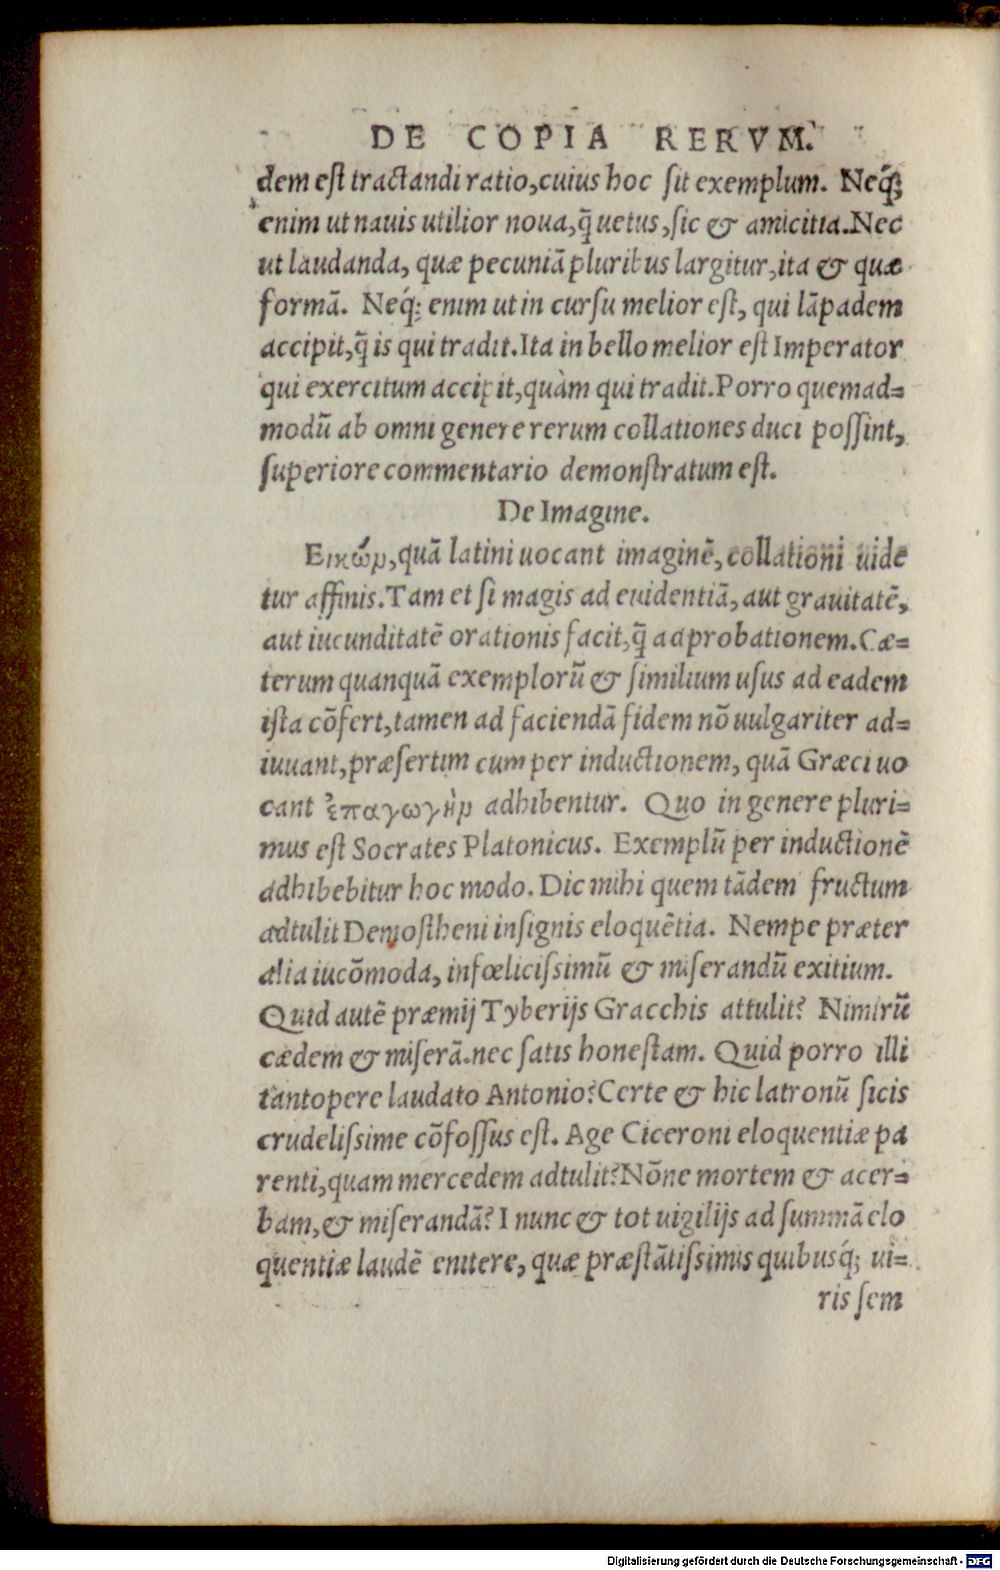 DE COPIA RERVM.
dem est tractandi ratio, cuius hoc sit exemplum. Neq́;
enim ut nauis utilior noua, q̃ uetus, sic & amicitia. Nec
ut laudanda, quæ pecuniã pluribus largitur, ita & quæ
formã. Neq́; enim ut in cursu melior est, qui lãpadem
accipit, q̃ is qui tradit. Ita in bello melior est Imperator
qui exercitum accipit, quàm qui tradit. Porro quemad=
modũ ab omni genere rerum collationes duci possint,
superiore commentario demonstratum est.
De Imagine.
Εικών, quã latini uocant imaginẽ, collationi uide
tur affinis. Tam et si magis ad euidentiã, aut grauitatẽ,
aut iucunditatẽ orationis facit, q̃ ad probationem. Cæ=
terum quanquã exemplorũ & similium usus ad eadem
ista cõfert, tamen ad faciendã fidem nõ uulgariter ad=
iuuant, præsertim cum per inductionem, quã Græci uo
cant ἐπαγωγὴν adhibentur. Quo in genere pluri=
mus est Socrates Platonicus. Exemplũ per inductionẽ
adhibebitur hoc modo. Dic mihi quem tãdem fructum
adtulit Demostheni insignis eloquẽtia. Nempe præter
alia iucõmoda, infœlicissimũ & miserandũ exitium.
Quid autẽ præmij Tyberijs Gracchis attulit? Nimirũ
cædem & miserã. nec satis honestam. Quid porro illi
tantopere laudato Antonio? Certe & hic latronũ sicis
crudelissime cõfossus est. Age Ciceroni eloquentiæ pa
renti, quam mercedem adtulit? Nõne mortem & acer=
bam, & miserandã? I nunc & tot uigilijs ad summã elo
quentiæ laudẽ enitere, quæ præstãtissimis quibusq́; ui=
ris sem
Digitalisierung gefördert durch die Deutsche Forschungsgemeinschaft - DFG